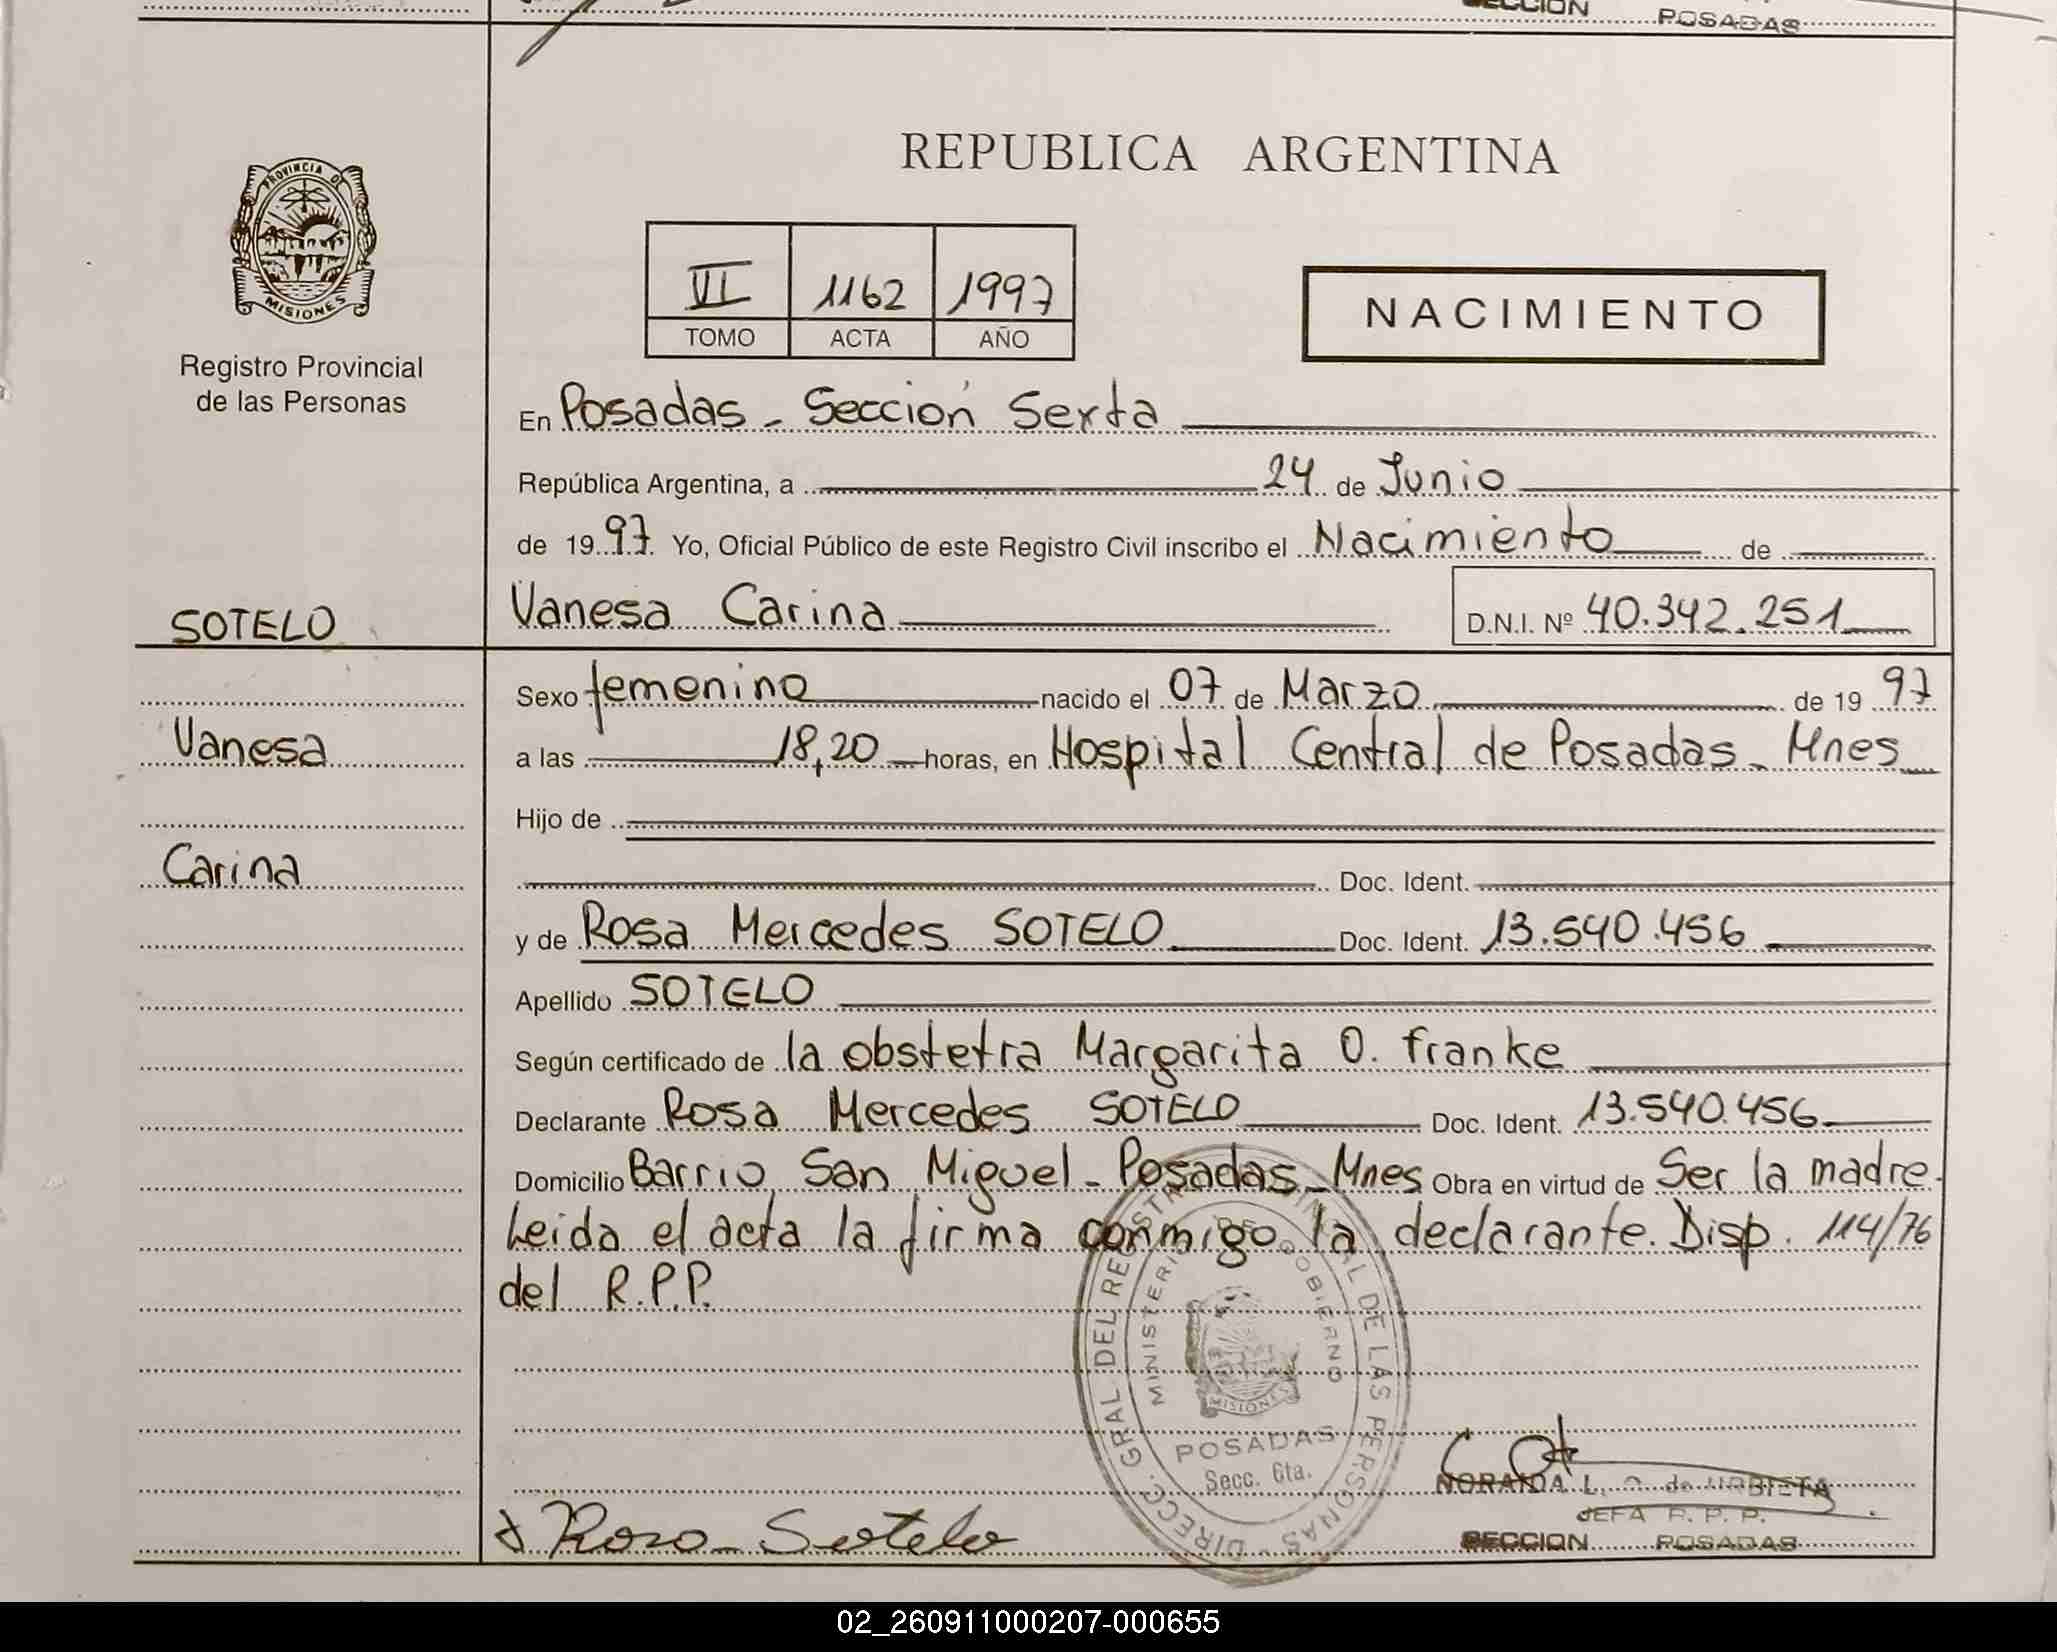 SECCION POSADAS
PROVINCIA DE
MISIONES
Registro Provincial
de las Personas
REPUBLICA ARGENTINA
VI 1162 1997
TOMO ACTA AÑO
NACIMIENTO
En Posadas - Sección Sexta
República Argentina, a 24 de Junio
de 1997. Yo, Oficial Público de este Registro Civil inscribo el Nacimiento de
SOTELO
Vanesa Carina D.N.I. Nº 40.342.251
Sexo femenino nacido el 07 de Marzo de 1997
Vanesa
a las 18,20 horas, en Hospital Central de Posadas - Mnes
Hijo de
Carina
Doc. Ident.
y de Rosa Mercedes SOTELO Doc. Ident. 13.540.456
Apellido SOTELO
Según certificado de la obstetra Margarita O. Franke
Declarante Rosa Mercedes SOTELO Doc. Ident. 13.540.456
Domicilio Barrio San Miguel - Posadas - Mnes Obra en virtud de Ser la madre.
Leida el acta la firma conmigo la declarante. Disp. 114/76
del R.P.P.
DIRECC. GRAL DEL REGISTRO PROVINCIAL DE LAS PERSONAS
MINISTERIO DE GOBIERNO
MISIONES
POSADAS
Secc. 6ta.
NORAIDA L. de URBIETA
JEFA R. P. P.
SECCION POSADAS
Rosa Sotelo
02_260911000207-000655